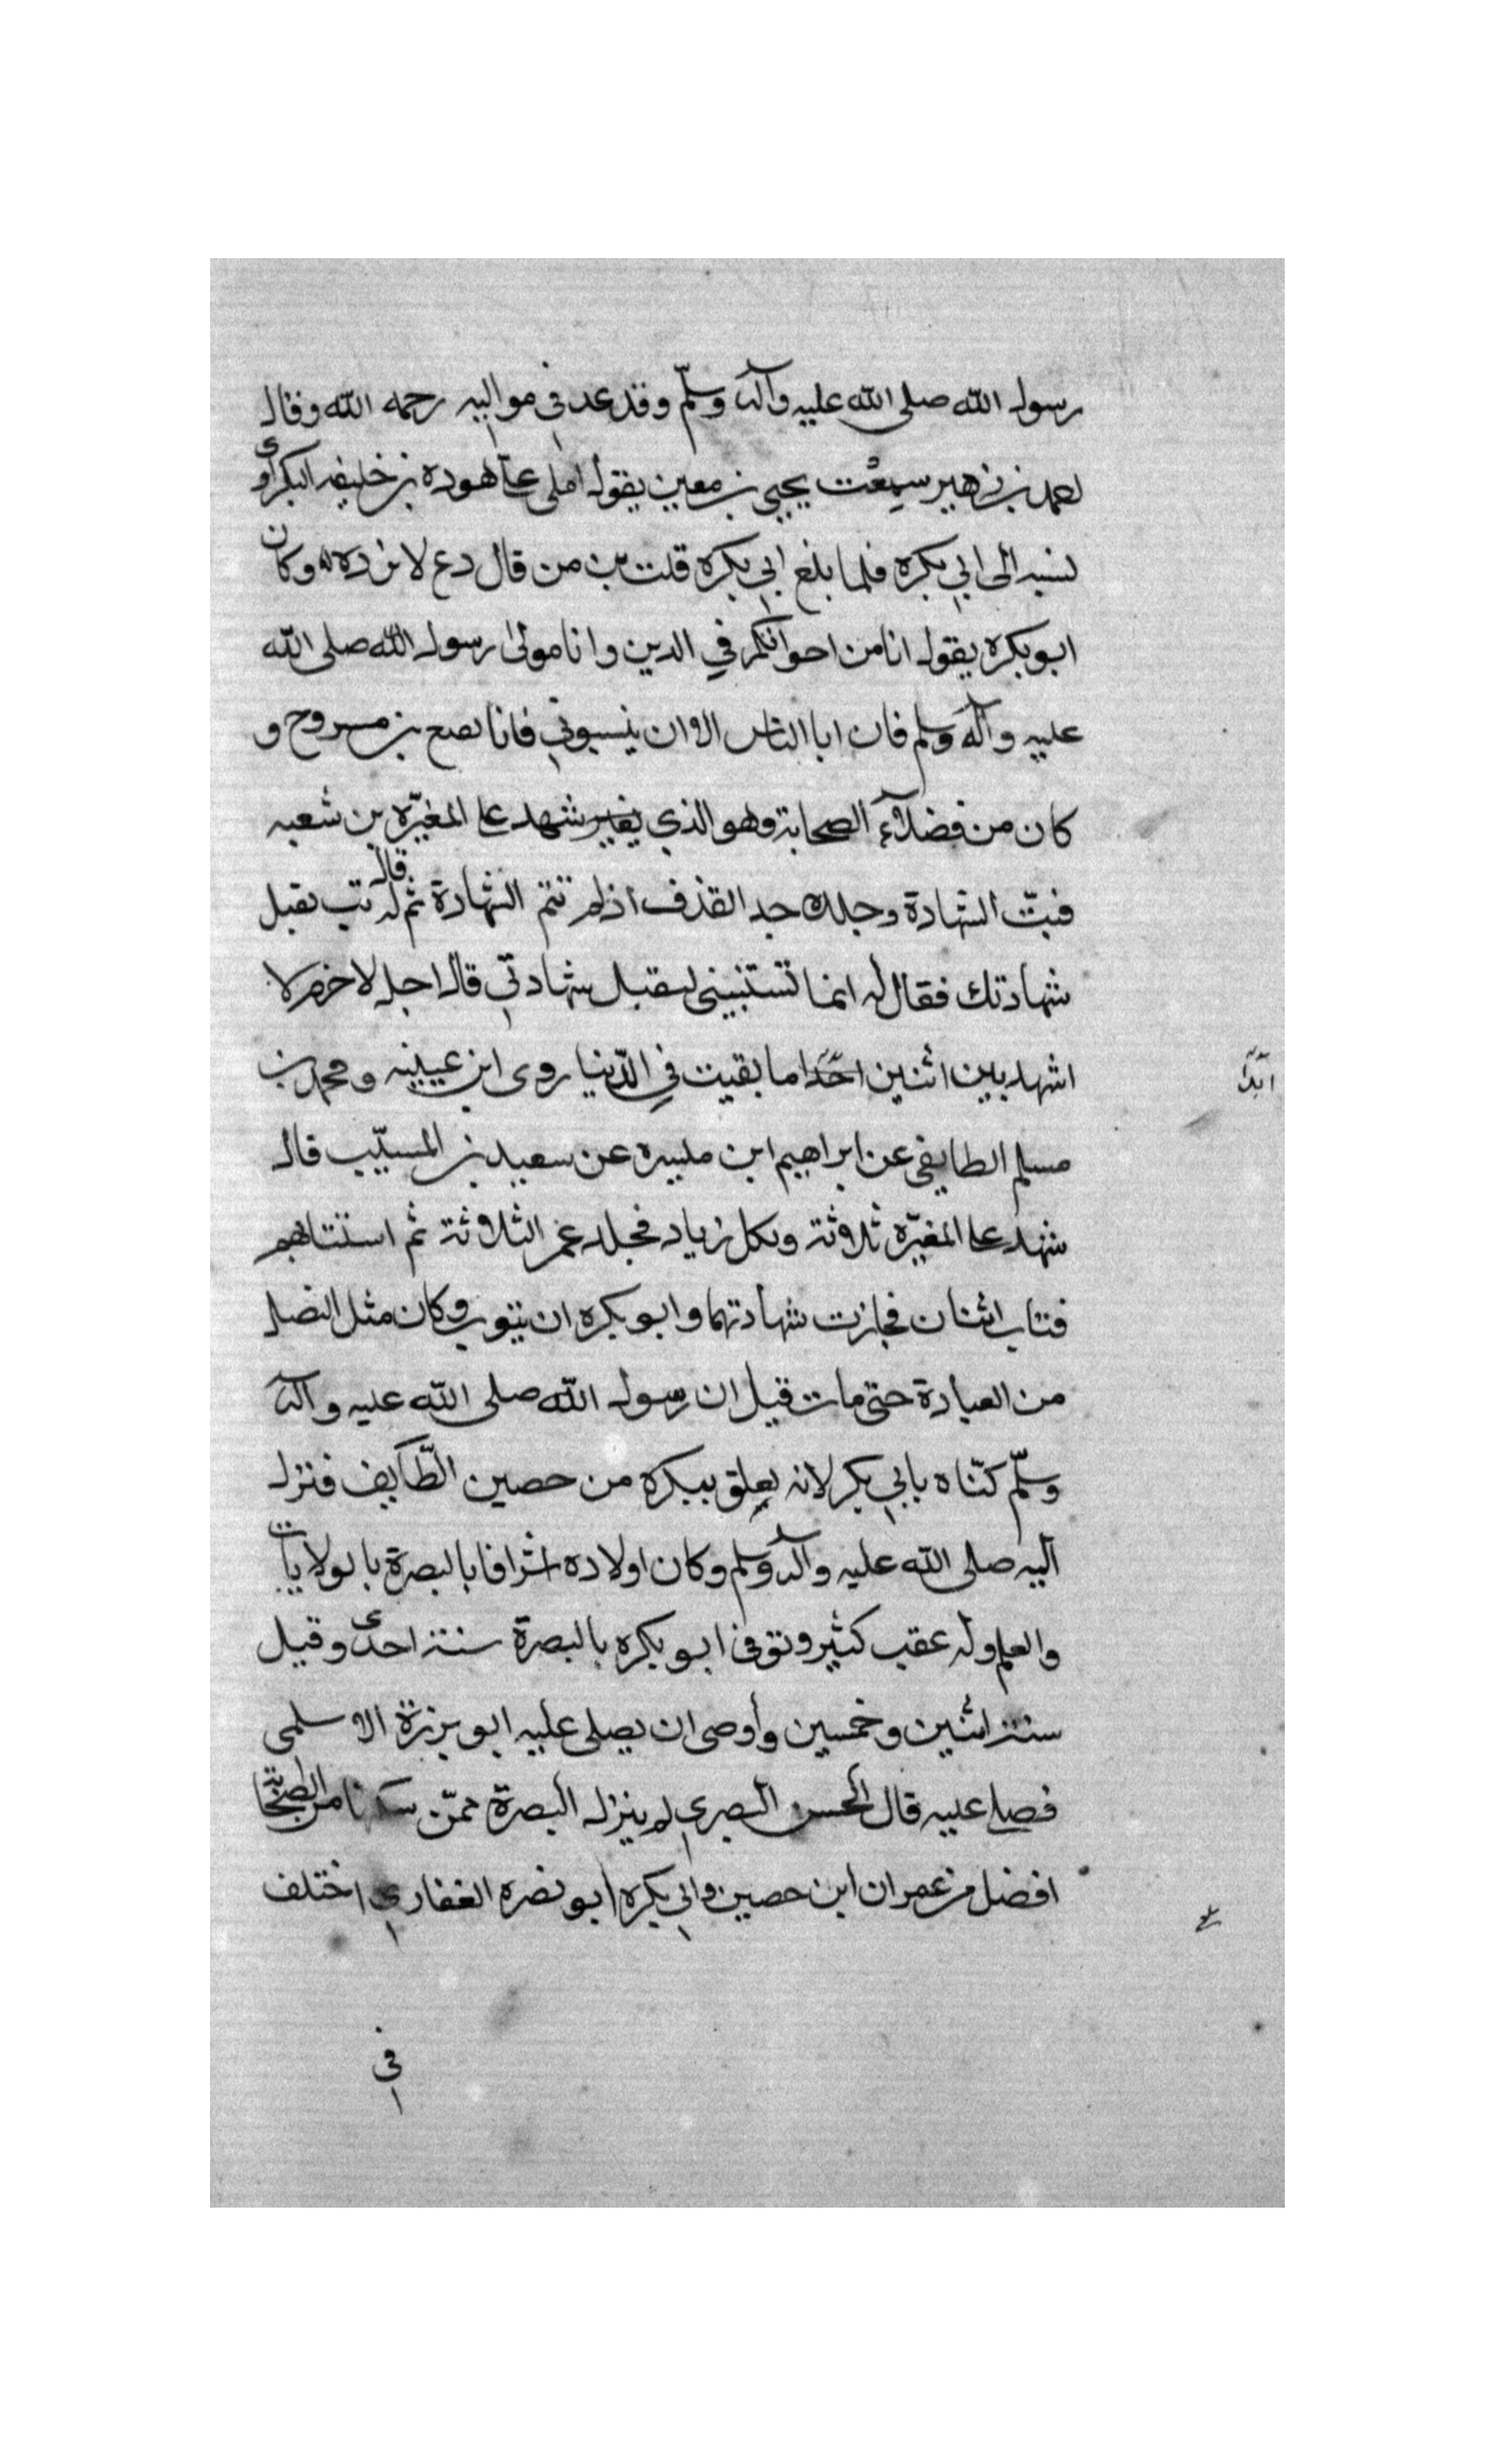 رسول الله صلى الله عليه وآله وسلّم وقد عد في مواليه رحمه الله وقال
احمد بن زهير سمعت يحيى بن معين يقول املى عليّ هوده بن خليفه البكراوى
نسبه الى ابي بكره فلما بلغ ابي بكره قلت بن من قال دع لا تزده وكان
ابو بكره يقول انا من اخوانكم في الدين وانا مولى رسول الله صلى الله
عليه وآله وسلم فان ابا الناس الا ان ينسبوني فانا نفيع بن مسروح و
كان من فضلاء الصحابة وهو الذي شهد على المغيّره بن شعبه
فبتّ الشهادة وجلده حد القذف اذ لم تتم الشهادة ثم قال له تب تقبل
شهادتك فقال له انما تستتبيني لتقبل شهادتي قال اجل لا جرم لا
اشهد بين اثنين احدا ما بقيت في الدّنيا روى ابن عيينه ومحمد بن
ابدا
مسلم الطايفي عن ابراهيم ابن ميسره عن سعيد بن المسيّب قال
شهد على المغيّره ثلاوثة ونكل زياد فجلد عمر الثلاوثة ثم استتابهم
فتاب اثنان فجازت شهادتهما وابو بكره ان يتوب وكان مثل النصل
من العبادة حتى مات قيل ان رسول الله صلى الله عليه وآله
وسلّم كنّاه بابي بكر لانه تعلق ببكره من حصين الطّايف فنزل
اليه صلى الله عليه وآله وسلم وكان اولاده اشرافا بالبصرة بالولايات
والعلم وله عقب كثير وتوفى ابو بكره بالبصرة سنة احدى وقيل
سنة اثنين وخمسين وأوصى ان يصلى عليه ابو برزة الاسلمى
فصلى عليه قال الحسن البصري لم ينزل البصرة ممّن سكنها من الصحابة
افضل من عمران ابن حصين وابي بكره ابو نضره الغفاري اختلف
في